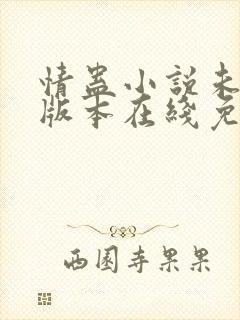 情蛊小说未
版本在线免
西园寺果果